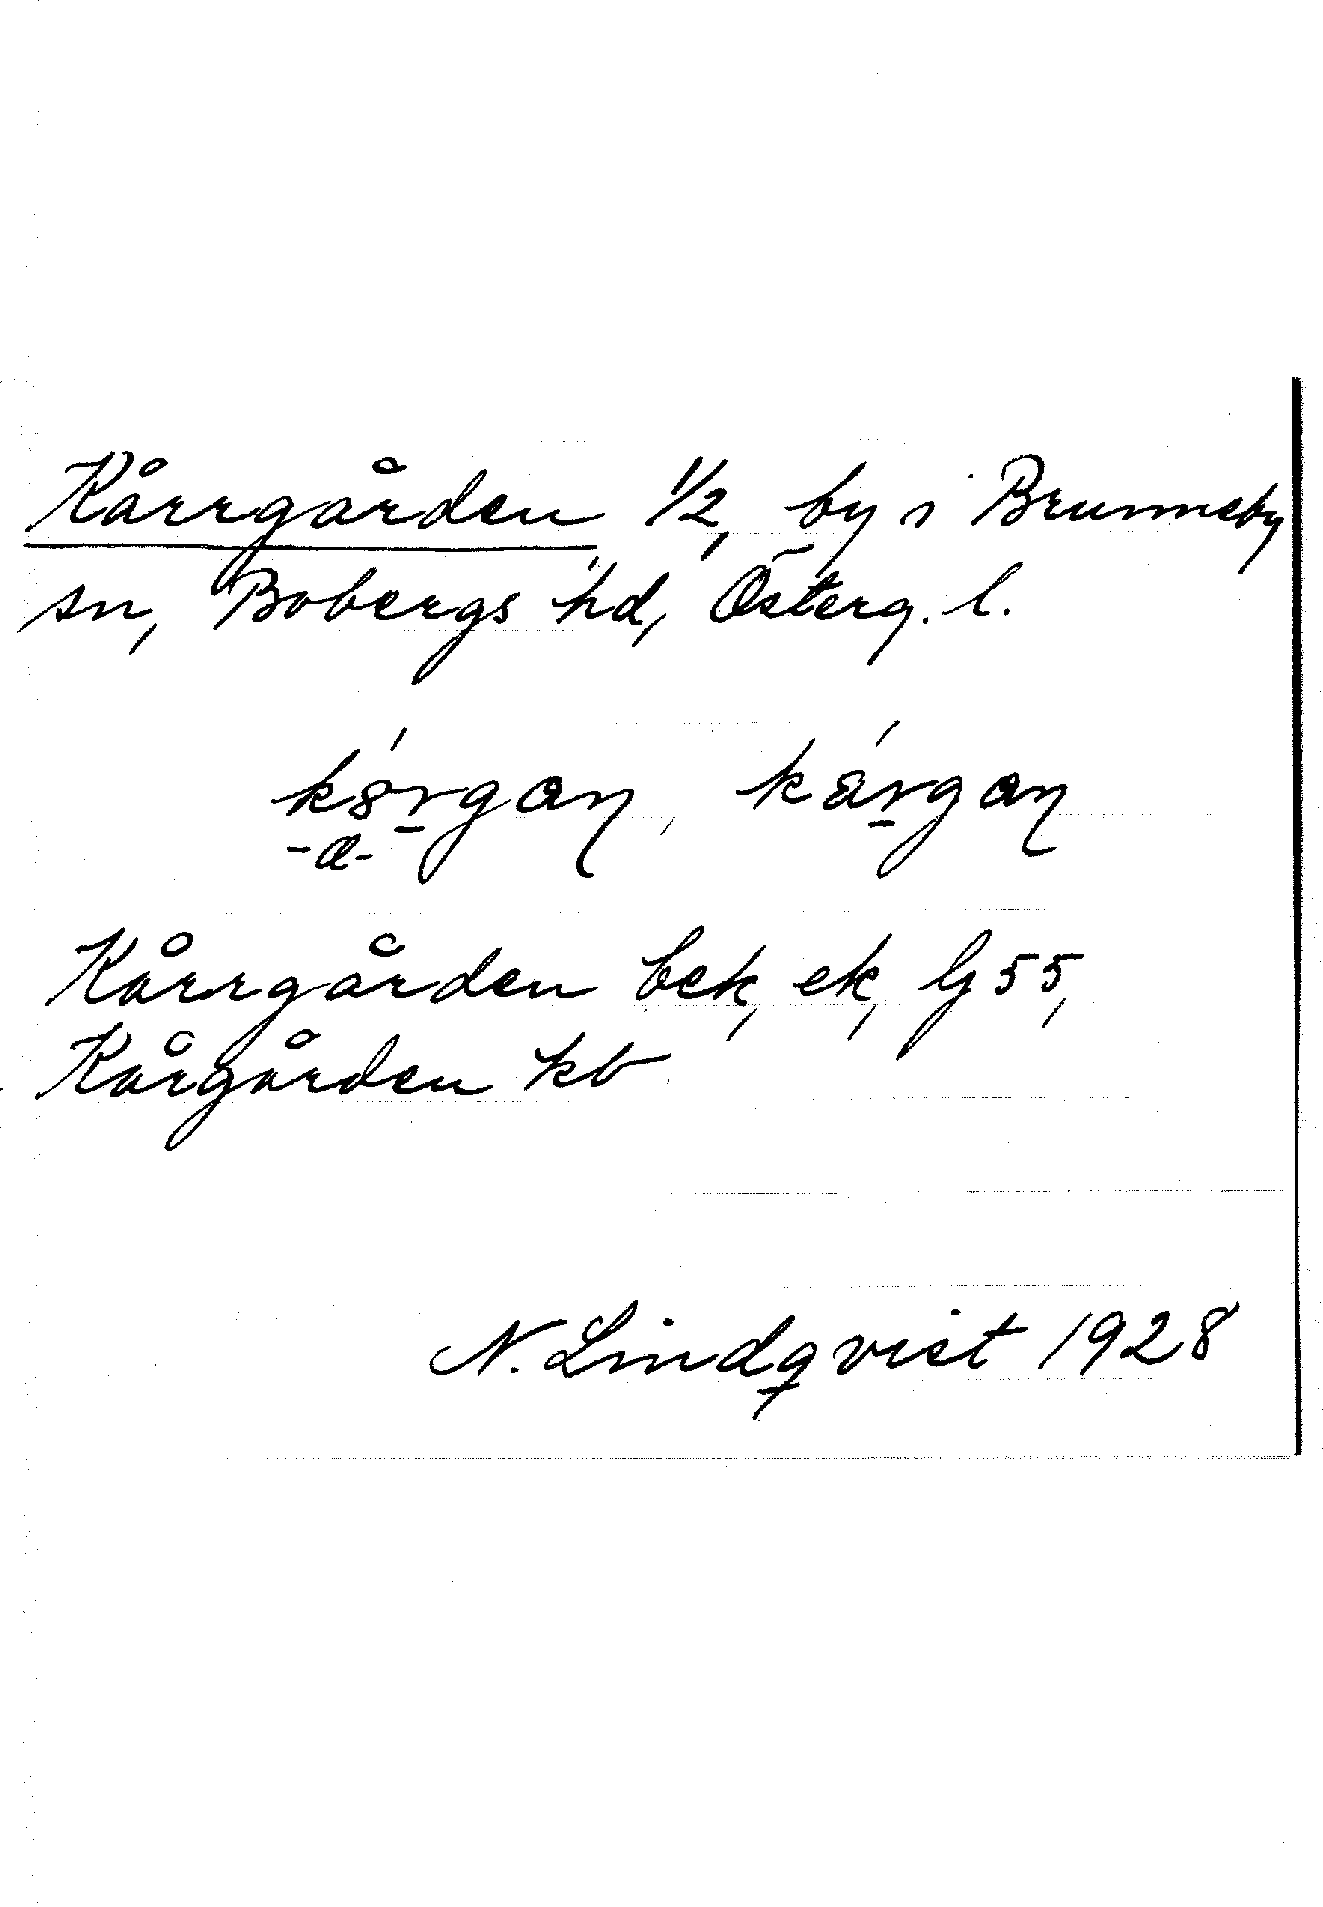 Kårrgården 1/2, by i Brunneby
sn, Bobergs hd, Österg. l.
kargan
-a-
Kårrgården bek, ek, Lj 55,
Kårgården kb
N. Lindqvist 1928